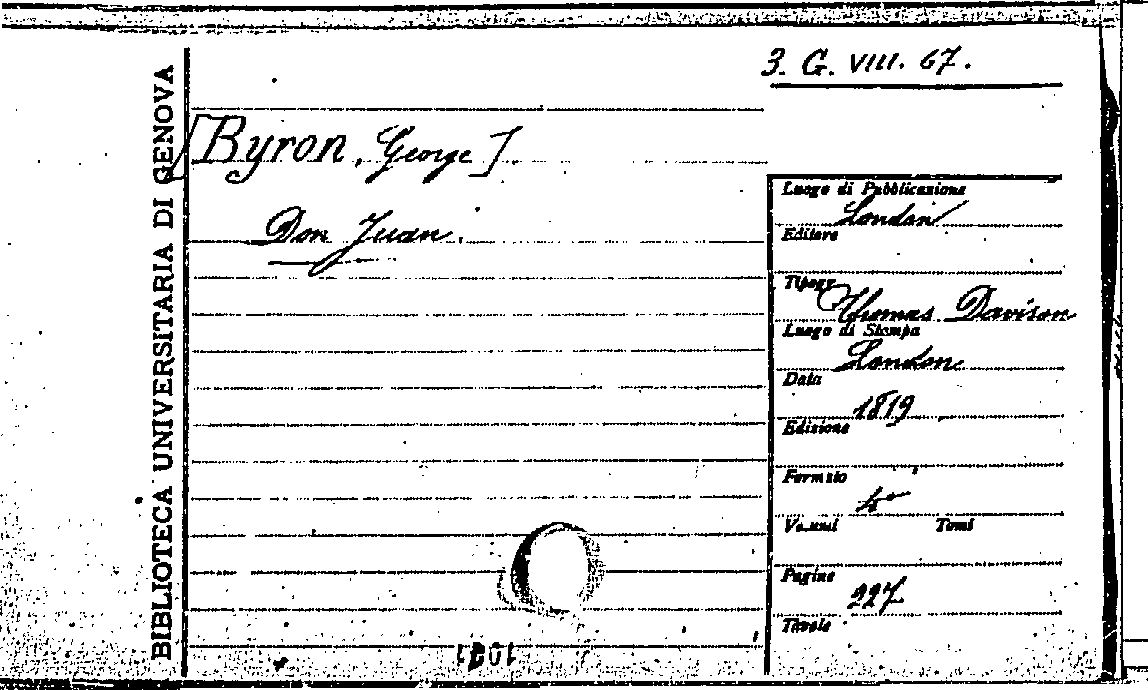 3. G. VIII. 67.
BIBLIOTECA UNIVERSITARIA DI GENOVA
[Byron, George]
Don Juan.
Luogo di Pubblicazione
London
Editore
Tipogr.
Thomas Davison
Luogo di Stampa
London
Data
1819
Edizione
Formato
4°
Volumi Tomi
Pagine
227
Tavole